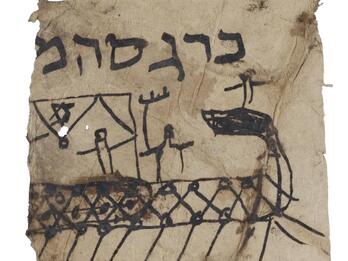 כרגסהמ